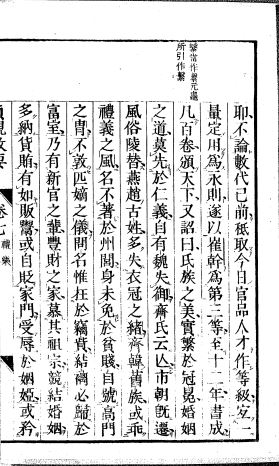 當作元龜
所引作
耶不論數代已前秪取今日官品人才作等級宜一
量定用為永則遂以崔幹為第三等至十二年書成
凡百卷頒天下又詔曰氏族之美實繫於冠冕婚姻
之道莫先於仁義自有魏失御齊氏云亡市朝既遷
風俗陵替燕趙古姓多失衣冠之緒齊韓舊族或乖
禮義之風名不著於州閭身未免於貧賤自號高門
之胄不敦匹嫡之儀問名惟在於竊貲結褵必歸於
富室乃有新官之輩豐財之家慕其祖宗競結婚姻
多納貨賄有如販鬻或自貶家門受辱於姻婭或矜
貞觀政要 卷七 禮樂